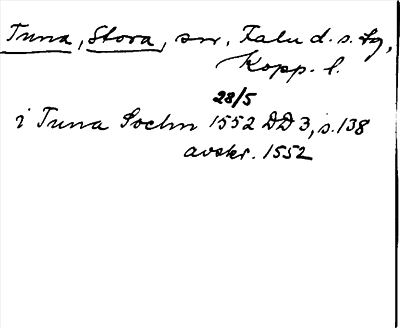 Tuna, Stora, sn, Falu d. s. fg,
Kopp. l.
28/5
i Tuna Sochn 1552 DD 3, s. 138
avskr. 1552